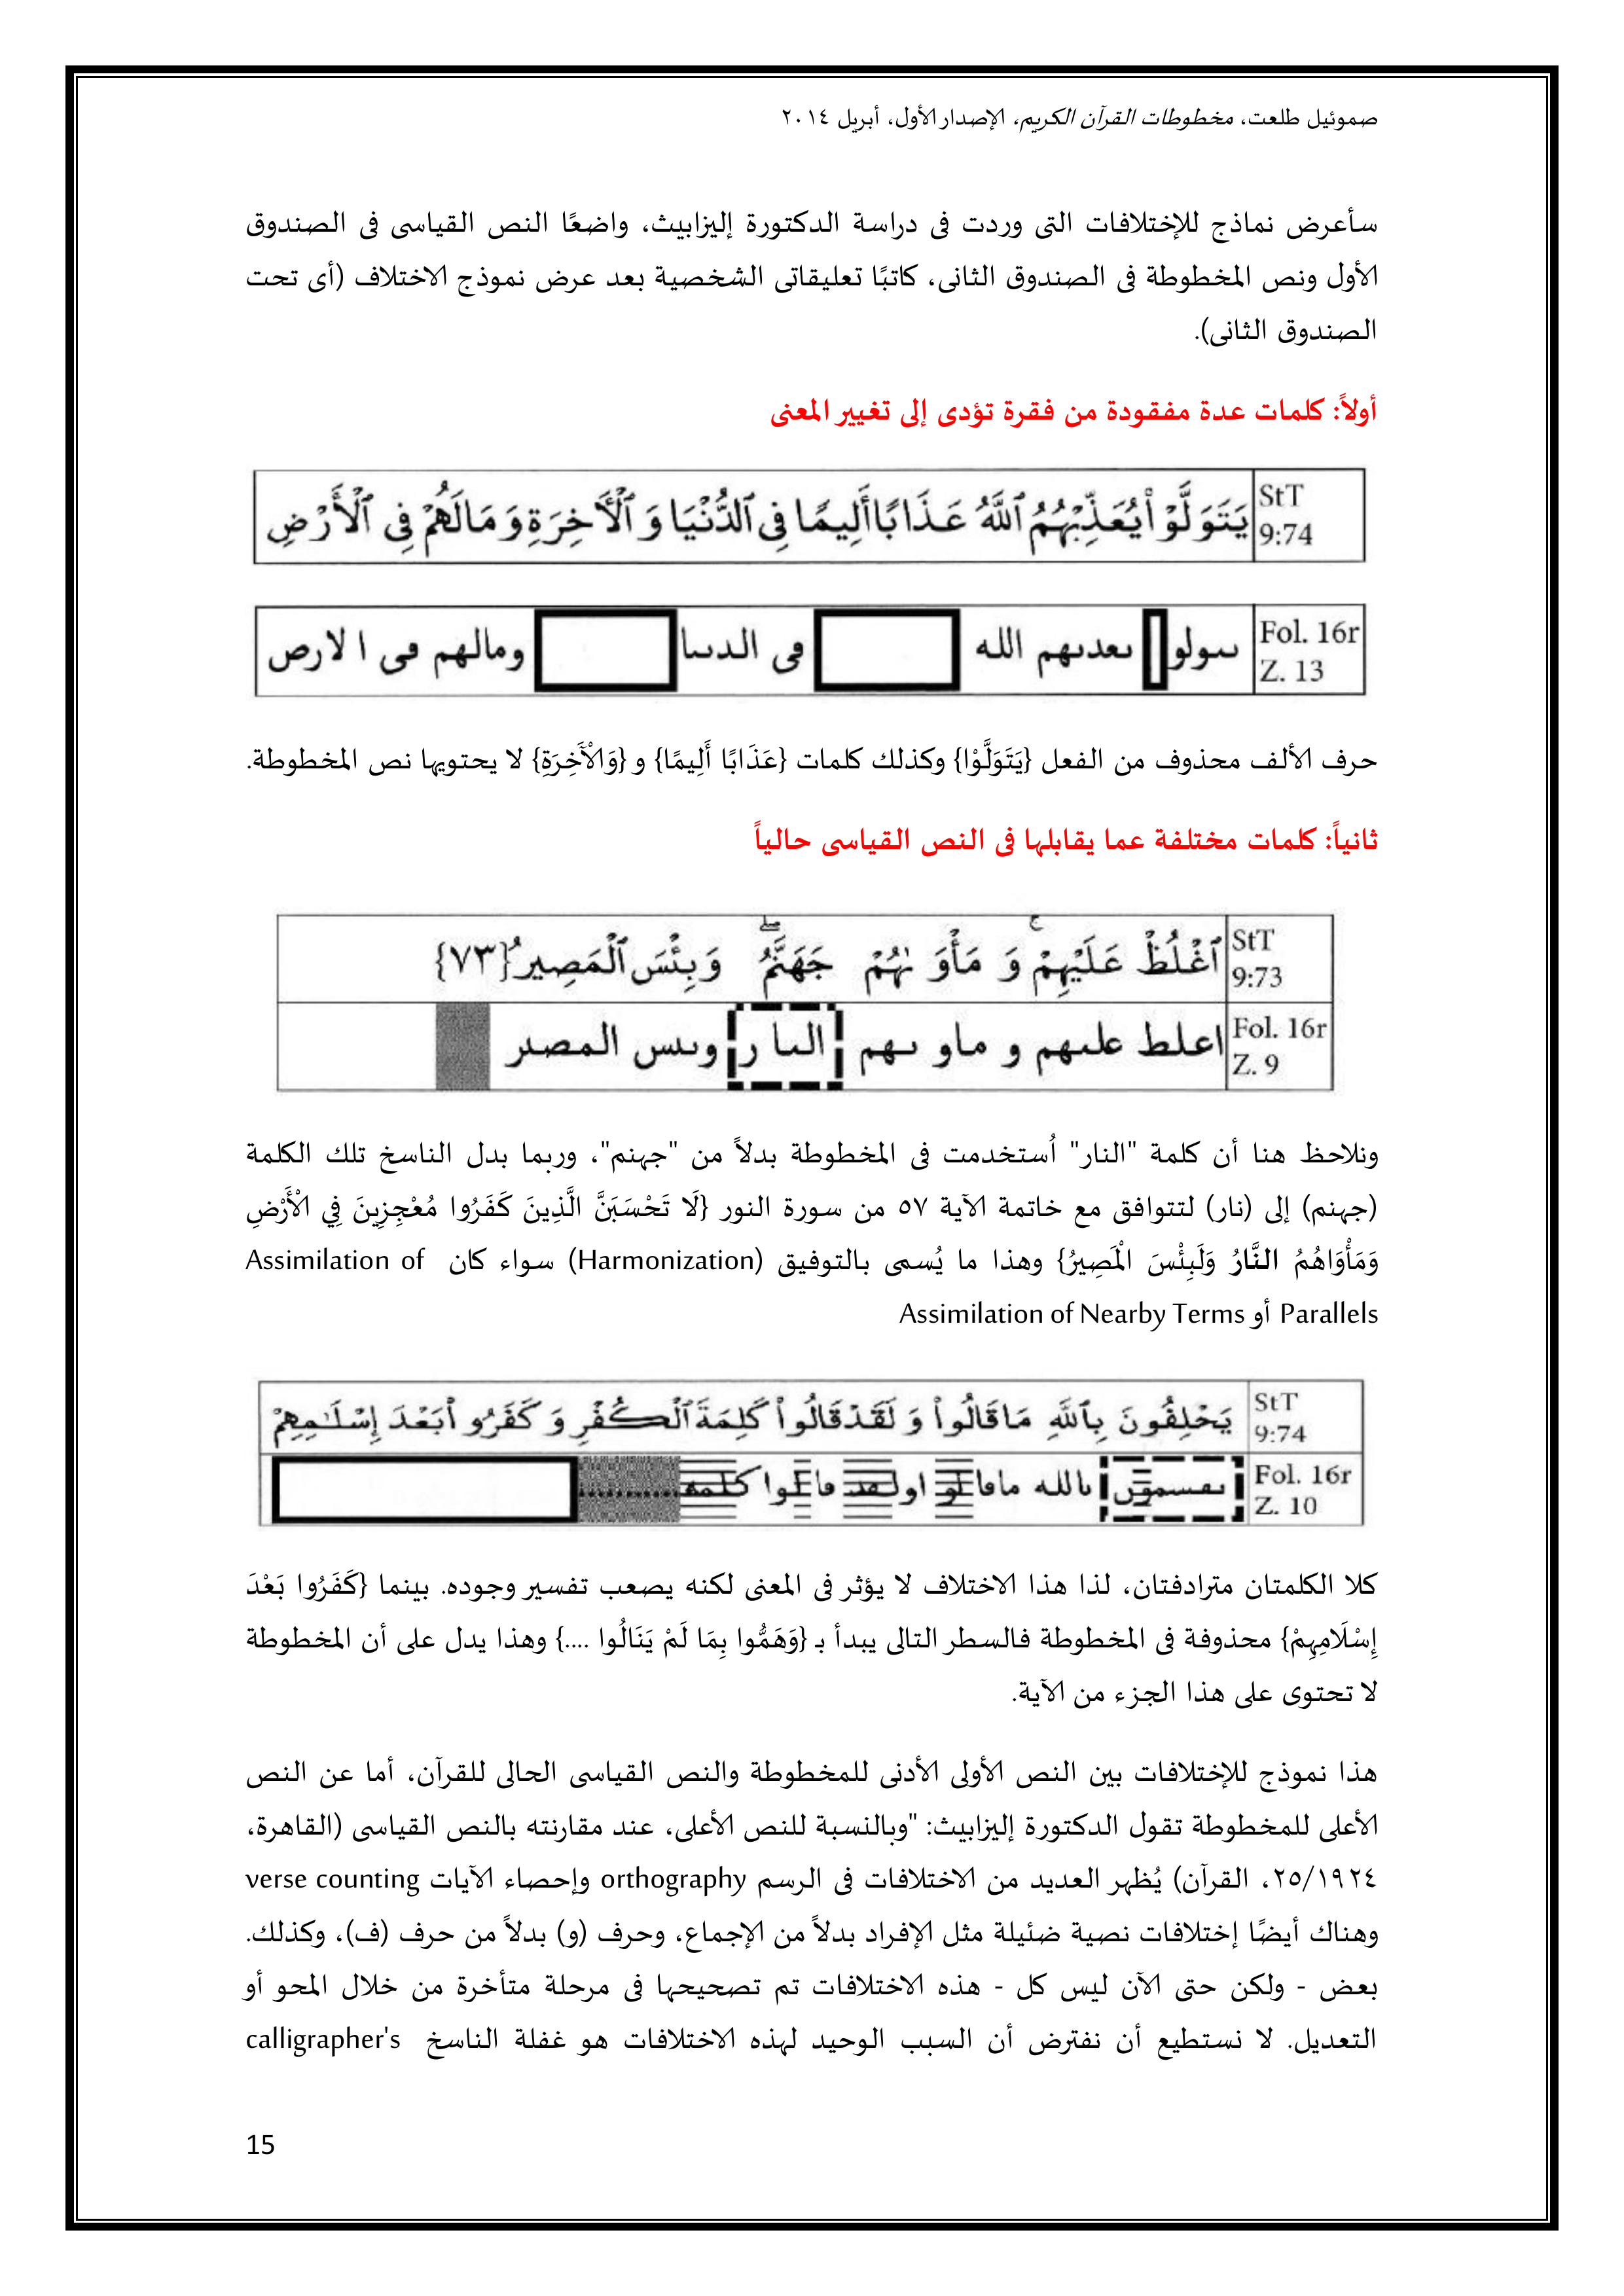 صموئيل طلعت، مخطوطات القرآن الكريم، الإصدار الأول، أبريل ٢٠١٤
سأعرض نماذج للإختلافات التى وردت فى دراسة الدكتورة إليزابيث، واضعًا النص القياسى فى الصندوق
الأول ونص المخطوطة فى الصندوق الثانى، كاتبًا تعليقاتى الشخصية بعد عرض نموذج الاختلاف (أى تحت
الصندوق الثانى).
أولاً: كلمات عدة مفقودة من فقرة تؤدى إلى تغيير المعنى
StT
9:74
يَتَوَلَّوۡاْ يُعَذِّبۡهُمُ ٱللَّهُ عَذَابًا أَلِيمًا فِى ٱلدُّنۡيَا وَ ٱلۡأَخِرَةِ وَ مَالَهُمۡ فِى ٱلۡأَرۡضِ
Fol. 16r
Z. 13
ٮٮولو ٮعدٮهم الله فى الدٮٮا ومالهم فى ا لارص
حرف الألف محذوف من الفعل {يَتَوَلَّوْا} وكذلك كلمات {عَذَابًا أَلِيمًا} و {وَالْآخِرَةِ} لا يحتويها نص المخطوطة.
ثانياً: كلمات مختلفة عما يقابلها فى النص القياسى حالياً
StT
9:73
ٱغۡلُظۡ عَلَيۡهِمۡۚ وَ مَأۡوَ ىٰهُمۡ جَهَنَّمُۖ وَبِئۡسَ ٱلۡمَصِيرُ {٧٣}
Fol. 16r
Z. 9
اعلط علٮهم و ماو ٮهم الٮا ر وٮٮس المصٮر
ونلاحظ هنا أن كلمة "النار" اُستخدمت فى المخطوطة بدلاً من "جهنم"، وربما بدل الناسخ تلك الكلمة
(جهنم) إلى (نار) لتتوافق مع خاتمة الآية ٥٧ من سورة النور {لَا تَحْسَبَنَّ الَّذِينَ كَفَرُوا مُعْجِزِينَ فِي الْأَرْضِ
وَمَأْوَاهُمُ النَّارُ وَلَبِئْسَ الْمَصِيرُ} وهذا ما يُسمى بالتوفيق (Harmonization) سواء كان Assimilation of
Parallels أو Assimilation of Nearby Terms
StT
9:74
يَحۡلِفُونَ بِٱللَّهِ مَا قَالُواْ وَ لَقَدۡ قَالُواْ كَلِمَةَ ٱلۡكُفۡرِ وَ كَفَرُو اْ بَعۡدَ إِسۡلَـٰمِهِمۡ
Fol. 16r
Z. 10
ٮڡسموں ٮالله ماڡا لو اولڡد ڡا لوا كلمه
كلا الكلمتان مترادفتان، لذا هذا الاختلاف لا يؤثر فى المعنى لكنه يصعب تفسير وجوده. بينما {كَفَرُوا بَعْدَ
إِسْلَامِهِمْ} محذوفة فى المخطوطة فالسطر التالى يبدأ بـ {وَهَمُّوا بِمَا لَمْ يَنَالُوا ....} وهذا يدل على أن المخطوطة
لا تحتوى على هذا الجزء من الآية.
هذا نموذج للإختلافات بين النص الأولى الأدنى للمخطوطة والنص القياسى الحالى للقرآن، أما عن النص
الأعلى للمخطوطة تقول الدكتورة إليزابيث: "وبالنسبة للنص الأعلى، عند مقارنته بالنص القياسى (القاهرة،
٢٥/١٩٢٤، القرآن) يُظهر العديد من الاختلافات فى الرسم orthography وإحصاء الآيات verse counting
وهناك أيضًا إختلافات نصية ضئيلة مثل الإفراد بدلاً من الإجماع، وحرف (و) بدلاً من حرف (ف)، وكذلك.
بعض - ولكن حتى الآن ليس كل - هذه الاختلافات تم تصحيحها فى مرحلة متأخرة من خلال المحو أو
التعديل. لا نستطيع أن نفترض أن السبب الوحيد لهذه الاختلافات هو غفلة الناسخ calligrapher's
15